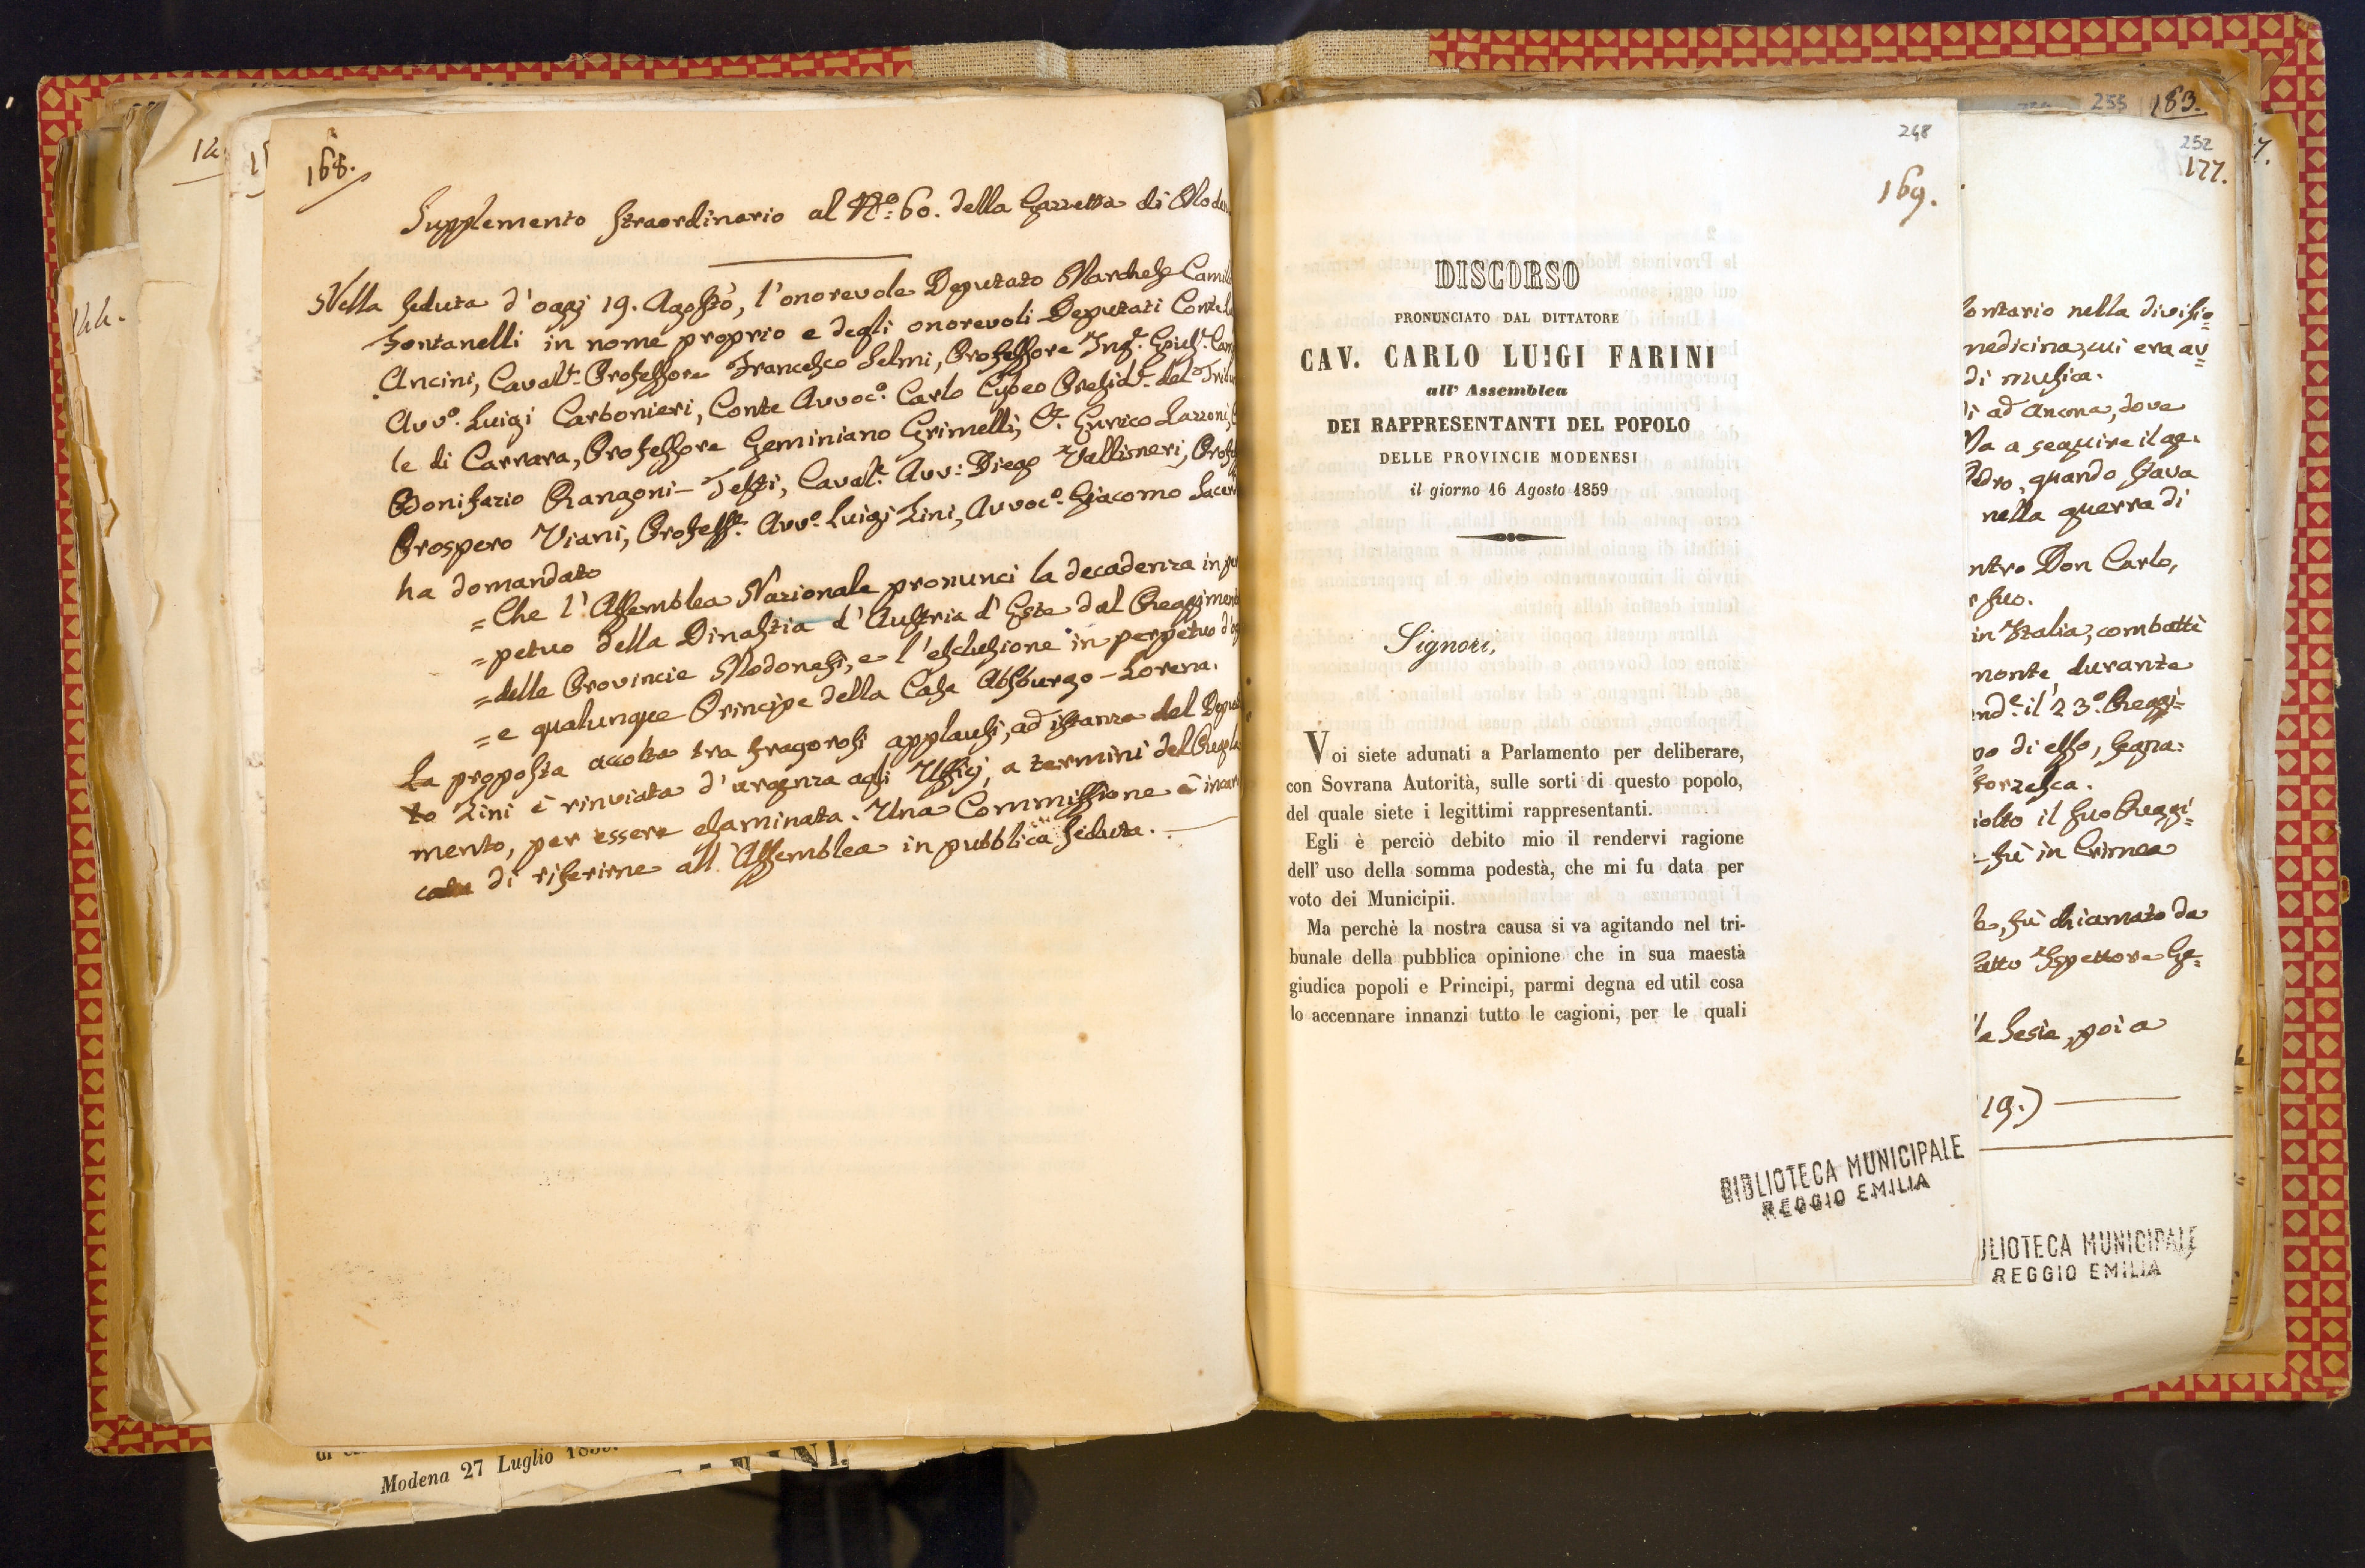 168.
Supplemento straordinario al N.º 60. della Gazzetta di
Nella seduta d'oggi 19. Agosto, l'onorevole Deputato Marchese
Fontanelli in nome proprio e degli onorevoli Deputati Conte
Ancini, Caval.r Professore Francesco Selmi, Professore Ing.r
Avv.º Luigi Carbonieri, Conte Avvoc.º Carlo Cybeo Presid.e del
le di Carrara, Professore Geminiano Grimelli, Enrico Lazzoni,
Bonifazio Rangoni-Testi, Caval.e Avv: Diego Vallisneri,
Prospero Viani, Profess.e Avv.º Luigi Zini, Avvoc.º Giacomo
ha domandato
= Che l'Assemblea Nazionale pronunci la decadenza in
= petuo della Dinastia d'Austria d'Este dal
= delle Provincie Modonesi, e l'esclusione in perpetuo
= e qualunque Principe della Casa Absburgo-Lorena.
La proposta accolta tra fragorosi applausi, ad istanza del
to Zini è rinviata d'urgenza agli Uffizj, a termini del
mento, per essere esaminata. Una Commissione è
di riferirne all'Assemblea in pubblica seduta.
Modena 27 Luglio
248
169.
DISCORSO
PRONUNCIATO DAL DITTATORE
CAV. CARLO LUIGI FARINI
all' Assemblea
DEI RAPPRESENTANTI DEL POPOLO
DELLE PROVINCIE MODENESI
il giorno 16 Agosto 1859
Signori,
Voi siete adunati a Parlamento per deliberare,
con Sovrana Autorità, sulle sorti di questo popolo,
del quale siete i legittimi rappresentanti.
Egli è perciò debito mio il rendervi ragione
dell' uso della somma podestà, che mi fu data per
voto dei Municipii.
Ma perchè la nostra causa si va agitando nel tri-
bunale della pubblica opinione che in sua maestà
giudica popoli e Principi, parmi degna ed util cosa
lo accennare innanzi tutto le cagioni, per le quali
BIBLIOTECA MUNICIPALE
REGGIO EMILIA
255 183.
252
177.
nella
di musica.
ad Ancona, dove
a seguire il
quando stava
nella guerra di
Don Carlo,
suo.
in Italia, combattè
durante
il 23.º Reggi=
di esso,
il suo
fù in Crimea
fù chiamato da
Ispettore Ge=
Sesia, poi a
19.)
MUNICIPALE
REGGIO EMILIA